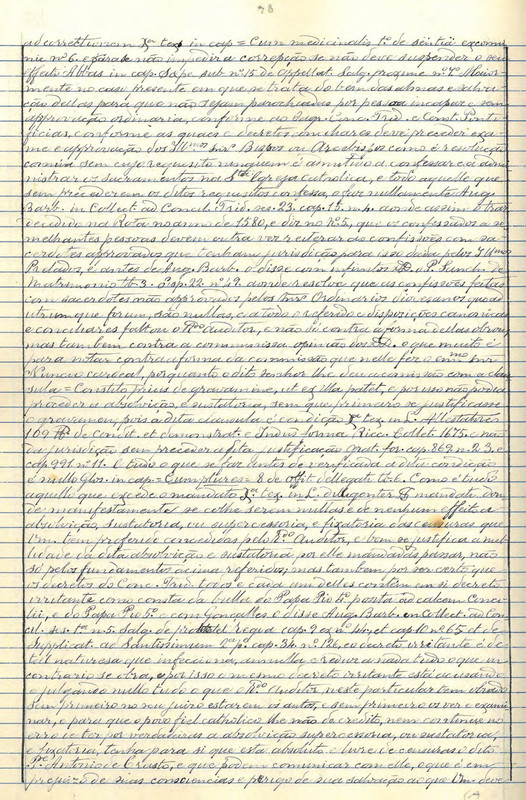 78
ad correctionem Xª tex in cap = Cum medicinalis tº de sentia excomu
nic nº 6. e para não impedir a correpção se não deve suspender o seu
effeito Abbas in cap. Sepe sub nº 15 de Appellat. Salg. proxime nº
mente no caso presente em que se trata do bem das almas e salva
ção dellas para que não sejam parochiadas por pessoa incapaz e sem
approvação ordinaria, conforme ao Sagr. Conc. Trid. e Const. Ponti
ficias, conforme as quaes e decretos, conciliares deve preceder exa
me e approvação dos Illmos snr. Bispos ou Arcebispos como é resolução
comua sem cujo requisito ninguem é admittido a confessar e a admi
nistrar os sacramentos na Stª Egreja catholica, e todo aquelle que
sem precederem os ditos requisitos confessa, o faz nullamente Aug.
Barb. in Collect. ad Concil. Trid. ses. 23. cap. 15. nº 4. aonde assim o traz
decidido na Rota no anno de 1580, e diz no nº 5, que os confessados a se
melhantes pessoas devem outra vez reiterar as confissões com sa
cerdotes approvados que tenham jurisdição para isso dada pelos Illmos
Prelados, e antes de Aug. Barb. o disse com infinitos DD. o P. Sanches de
Matrimonio lib 3. disp. 22. nº 42. aonde resolve que as confissões feitas
com sacerdotes não approvados pelos Snrs Ordinarios diocesanos quoad
utrumque forum, são nullas, e a todo o referido e disposições canonicas
e conciliares faltou o Rdo Auditor, e não só contra a forma dellas obrou,
mas tambem contra a commua opinião dos DD. o que muito é
para notar contra a forma da commissão que nelle fez o Emmo snr
Nuncio cardeal, porquanto o dito senhor lhe deu a comissão com a clau
sula = Constito prius de gravamine, ut ex illa patet, e por isso não podia
proceder a absolvição e sustatoria, sem que primeiro se justificasse
o gravamen, pois a dita clausula é condição Xª tex. in L.
109 ff de Condit. et demonstrat. e Sendin forma, Ricc. Collect. 1675. e não
da jurisdição sem preceder a dita justificação Grat. for. cap. 869. n. 23. e
cap. 991 nº 11. E tudo o que se faz antes de verificada a dita condição
é nullo Glos. in cap. = Cum plures = 8 de offit. delegat. li. 6. Como é tudo
aquillo que excede o mandato Xª tex. in L. diligenter ff mandati don
de manifestamente se colhe serem nullas e de nenhum effeito a
absolvição, sustatoria, ou supercessoria, e fixatoria das censuras que
Vm. tem proferido concedidas pelo Rdo Auditor, e bem se justifica a nul
lidade da dita absolvição e sustatoria por elle mandadas passar, não
só pelos fundamentos acima referidos; mas tambem por ser certo que
os decretos do Conc. Trid. todos e cada um delles contem em si decreto
irritante como consta da bulla do Papa Pio 4º. posta ad calcem Conci
lii, e do Papa Pio 5º. e com Gonçalles o disse Aug. Barb. in Collect. ad Con
cil. ses. 1ª n. 5. Salg. de protect. regia cap. 2 ex nº 144 et cap. 10 nº 65 et de
Supplicat. ad Santissimum 2ª p. cap. 34. nº 126, e o decreto irritante é de
tal natureza que infecciona, annulla, e reduz a nada tudo o que em
contrario se obra, e por isso o mesmo decreto irritante está accusando
e julgando nullo tudo o que o Rdo Auditor, neste particular tem obrado
sem primeiro no seu juizo estarem os autos, e sem primeiro os ver e exami
nar, e para que o povo fiel catholico lhe não de credito, nem continue no
erro de ter por verdadeiras a absolvição supercessoria, ou sustatoria,
e fixatoria, tenha para si que está absoluto e livre de censuras o dito
Pe Antonio de Crasto, e que podem comunicar com elle, o que é em
prejuizo de suas consciencias e perigo de sua salvação ao que Vm deve